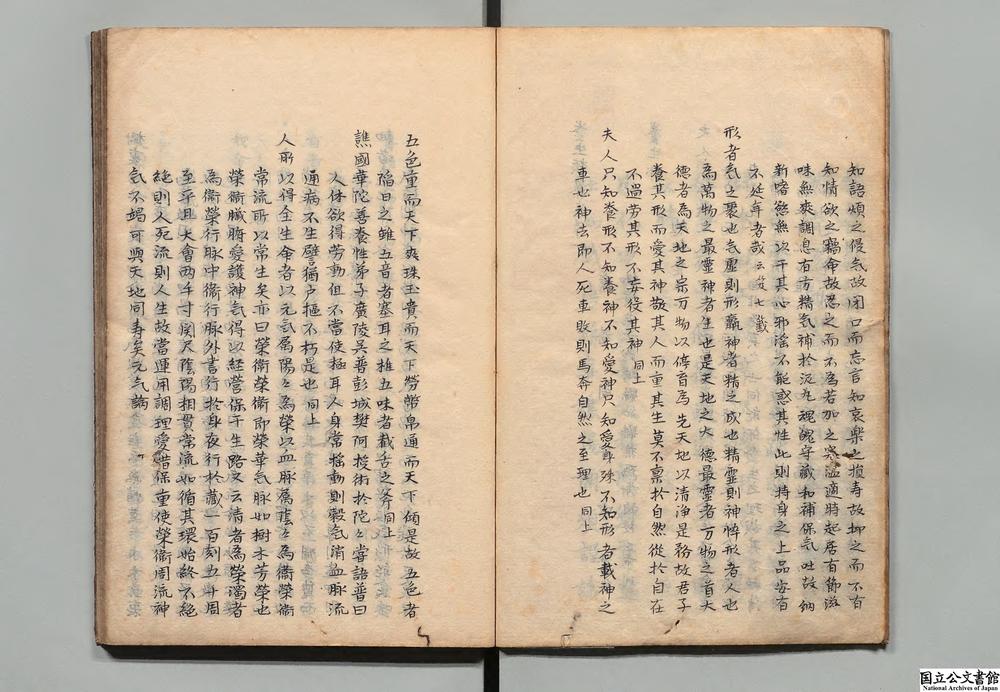 知語煩之侵気故閉口而忘言知哀樂之損寿故抑之而不有
知情欲之竊命故忍之而不為若加之寒温適時起居有節滋
味無爽調息有方精気補於泥丸魂魄守蔵和神保気吐故納
新嗜慾無以干其心邪淫不能惑其性此則持身之上品安有
不延年者哉 云笈七籤
形者気之裹也気虚則形羸神者精之成也精霊則神悴形者人也
為萬物之最靈神者生也是天地之大德最靈者万物之首大
德者為天地之宗万物以停育為先天地以清浄是務故君子
養其形而愛其神敬其人而重其生莫不稟於自然從於自在
不過労其形不妄役其神 同上
夫人只知養形不知養神不知愛神只知愛身殊不知形者載神之
車也神去即人死車敗則馬奔自然之至理也 同上
五色重而天下爽珠玉貴而天下勞幣帛通而天下傾是故五色者
陥目之錐五音者塞耳之椎五味者截舌之斧 同上
譙國華陀善養性弟子廣陵吳普彭城樊阿授術於陀々嘗語普曰
人体欲得労動但不當使極耳人身常揺動則穀気消血脉流
通病不生譬猶戸樞不朽是也 同上
人所以得全生命者以元気属陽々為榮以血脉属陰々為衞榮衞
常流所以常生矣亦曰榮衞榮衞即榮華気脉如樹木芳榮也
榮衞臓腑愛護神気得以経營保于生路又云清者為榮濁者
為衞榮行脉中衞行脉外晝行於身夜行於蔵一百刻五十周
至平旦大會両手寸関尺陰陽相貫常流如循其環始終不絶
絶則人死流則人生故當運用調理愛惜保重使榮衞周流神
気不竭可與天地同寿矣 元气論
国立公文書館
National Archives of Japan